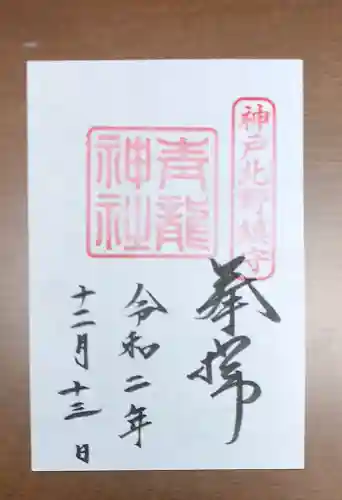 神戸北野鎮守
奉拝
青龍
神社
令和二年
十二月十三日